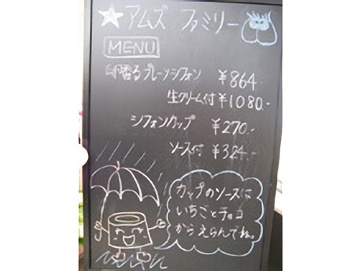 ★アムズ ファミリー
MENU
卵香るプレーンシフォン ¥864.
生クリーム付 ¥1080.-
シフォンカップ ¥270.-
ソース付 ¥324.-
カップのソースは
いちごとチョコ
からえらんでね。